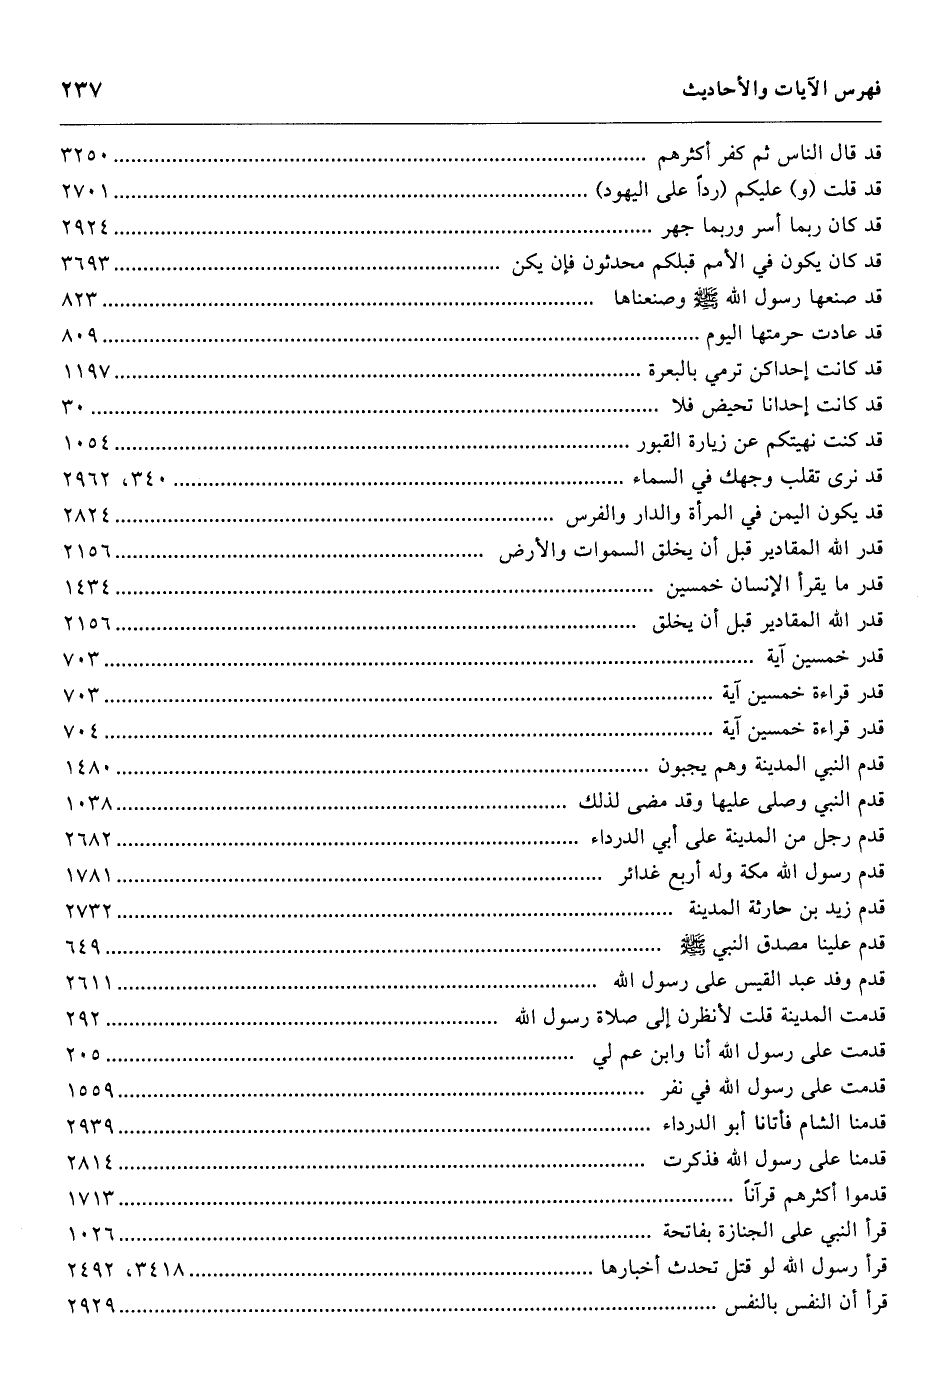 فهرس الآيات والأحاديث ٢٣٧
قد قال الناس ثم كفر أكثرهم ........ ٣٢٥٠
قد قلت (و) عليكم (رداً على اليهود) ........ ٢٧٠١
قد كان ربما أسر وربما جهر ........ ٢٩٢٤
قد كان يكون في الأمم قبلكم محدثون فإن يكن ........ ٣٦٩٣
قد صنعها رسول الله ﷺ وصنعناها ........ ٨٢٣
قد عادت حرمتها اليوم ........ ٨٠٩
قد كانت إحداكن ترمي بالبعرة ........ ١١٩٧
قد كانت إحدانا تحيض فلا ........ ٣٠
قد كنت نهيتكم عن زيارة القبور ........ ١٠٥٤
قد نرى تقلب وجهك في السماء ........ ٣٤٠، ٢٩٦٢
قد يكون اليمن في المرأة والدار والفرس ........ ٢٨٢٤
قدر الله المقادير قبل أن يخلق السموات والأرض ........ ٢١٥٦
قدر ما يقرأ الإنسان خمسين ........ ١٤٣٤
قدر الله المقادير قبل أن يخلق ........ ٢١٥٦
قدر خمسين آية ........ ٧٠٣
قدر قراءة خمسين آية ........ ٧٠٣
قدر قراءة خمسين آية ........ ٧٠٤
قدم النبي المدينة وهم يجبون ........ ١٤٨٠
قدم النبي وصلى عليها وقد مضى لذلك ........ ١٠٣٨
قدم رجل من المدينة على أبي الدرداء ........ ٢٦٨٢
قدم رسول الله مكة وله أربع غدائر ........ ١٧٨١
قدم زيد بن حارثة المدينة ........ ٢٧٣٢
قدم علينا مصدق النبي ﷺ ........ ٦٤٩
قدم وفد عبد القيس على رسول الله ........ ٢٦١١
قدمت المدينة قلت لأنظرن إلى صلاة رسول الله ........ ٢٩٢
قدمت على رسول الله أنا وابن عم لي ........ ٢٠٥
قدمت على رسول الله في نفر ........ ١٥٥٩
قدمنا الشام فأتانا أبو الدرداء ........ ٢٩٣٩
قدمنا على رسول الله فذكرت ........ ٢٨١٤
قدموا أكثرهم قرآناً ........ ١٧١٣
قرأ النبي على الجنازة بفاتحة ........ ١٠٢٦
قرأ رسول الله لو قتل تحدث أخبارها ........ ٣٤١٨، ٢٤٩٢
قرأ أن النفس بالنفس ........ ٢٩٢٩